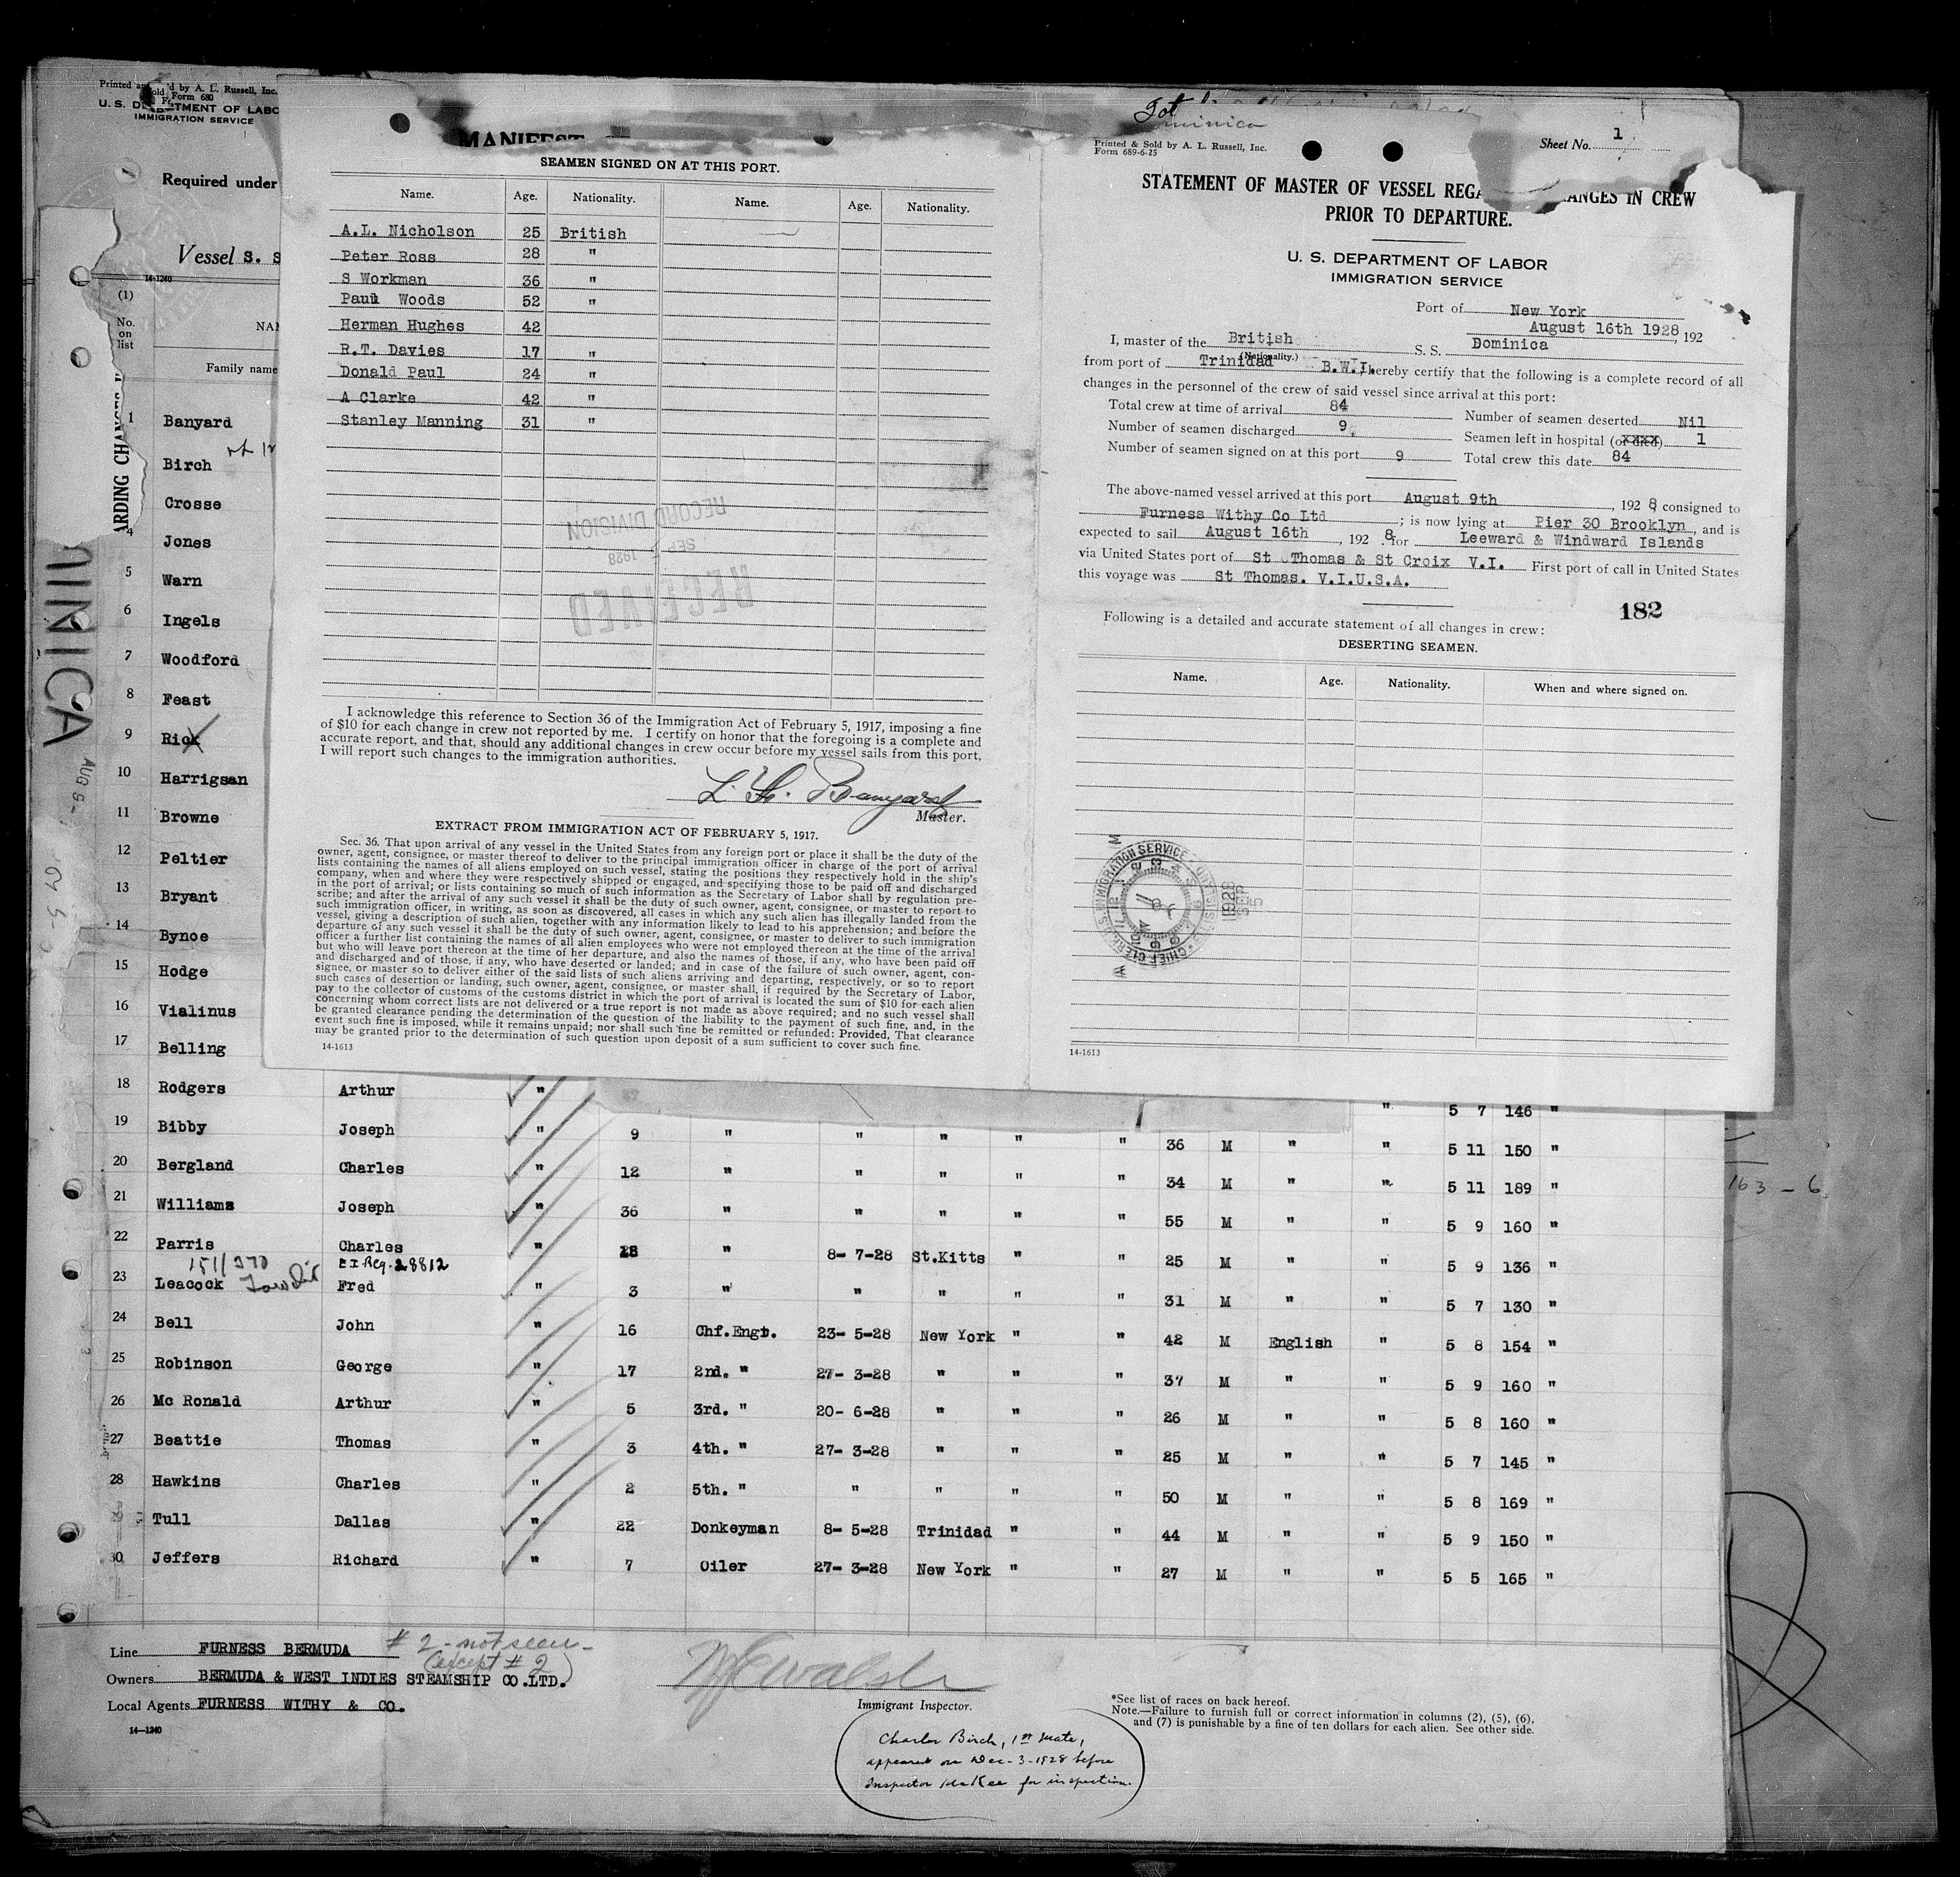 Printed and Sold by A. L. Russell, Inc.
Form 680
U. S. DEPARTMENT OF LABO
IMMIGRATION SERVICE
Required under
Vessel S. S
14-1240
(1)
No.
on
list
NAM
Family name
ARDING CHANGES I
MINICA
AUG 9-
1 Banyard
Birch
Crosse
4 Jones
5 Warn
6 Ingels
7 Woodford
8 Feast
9 Rick
10 Harrigsan
11 Browne
12 Peltier
13 Bryant
14 Bynoe
15 Hodge
16 Vialinus
17 Belling
MANIFEST
SEAMEN SIGNED ON AT THIS PORT.
Name. Age. Nationality. Name. Age. Nationality.
A.L. Nicholson 25 British
Peter Ross 28 "
S Workman 36 "
Paul Woods 52 "
Herman Hughes 42
R.T. Davies 17 "
Donald Paul 24 "
A Clarke 42 "
Stanley Manning 31 "
RECORD DIVISION
SEP 1928
RECEIVED
I acknowledge this reference to Section 36 of the Immigration Act of February 5, 1917, imposing a fine
of $10 for each change in crew not reported by me. I certify on honor that the foregoing is a complete and
accurate report, and that, should any additional changes in crew occur before my vessel sails from this port,
I will report such changes to the immigration authorities.
Banyard
Master.
EXTRACT FROM IMMIGRATION ACT OF FEBRUARY 5, 1917.
Sec. 36. That upon arrival of any vessel in the United States from any foreign port or place it shall be the duty of the
owner, agent, consignee, or master thereof to deliver to the principal immigration officer in charge of the port of arrival
lists containing the names of all aliens employed on such vessel, stating the positions they respectively hold in the ship's
company, when and where they were respectively shipped or engaged, and specifying those to be paid off and discharged
in the port of arrival; or lists containing so much of such information as the Secretary of Labor shall by regulation pre-
scribe; and after the arrival of any such vessel it shall be the duty of such owner, agent, consignee, or master to report to
such immigration officer, in writing, as soon as discovered, all cases in which any such alien has illegally landed from the
vessel, giving a description of such alien, together with any information likely to lead to his apprehension; and before the
departure of any such vessel it shall be the duty of such owner, agent, consignee, or master to deliver to such immigration
officer a further list containing the names of all alien employees who were not employed thereon at the time of the arrival
but who will leave port thereon at the time of her departure, and also the names of those, if any, who have been paid off
and discharged and of those, if any, who have deserted or landed; and in case of the failure of such owner, agent, con-
signee, or master so to deliver either of the said lists of such aliens arriving and departing, respectively, or so to report
such cases of desertion or landing, such owner, agent, consignee, or master shall, if required by the Secretary of Labor,
pay to the collector of customs of the customs district in which the port of arrival is located the sum of $10 for each alien
concerning whom correct lists are not delivered or a true report is not made as above required; and no such vessel shall
be granted clearance pending the determination of the question of the liability to the payment of such fine, and, in the
event such fine is imposed, while it remains unpaid; nor shall such fine be remitted or refunded: Provided, That clearance
may be granted prior to the determination of such question upon deposit of a sum sufficient to cover such fine.
14-1613
Printed & Sold by A. L. Russell, Inc.
Form 689-6-25
Sheet No. 1
STATEMENT OF MASTER OF VESSEL REGA ANGES IN CREW
PRIOR TO DEPARTURE.
U. S. DEPARTMENT OF LABOR
IMMIGRATION SERVICE
Port of New York
August 16th 1928, 192
I, master of the British S. S. Dominica
(Nationality.)
from port of Trinidad B.W.I. hereby certify that the following is a complete record of all
changes in the personnel of the crew of said vessel since arrival at this port:
Total crew at time of arrival 84 Number of seamen deserted Nil
Number of seamen discharged 9 Seamen left in hospital (or died) 1
Number of seamen signed on at this port 9 Total crew this date 84
The above-named vessel arrived at this port August 9th, 1928, consigned to
Furness Withy Co Ltd; is now lying at Pier 30 Brooklyn, and is
expected to sail August 16th, 1928. for Leeward & Windward Islands
via United States port of St Thomas & St Croix V.I. First port of call in United States
this voyage was St Thomas. V.I.U.S.A.
182
Following is a detailed and accurate statement of all changes in crew:
DESERTING SEAMEN.
Name. Age. Nationality. When and where signed on.
1928 SEP 5
14-1613
18 Rodgers Arthur " " 5 7 146 "
19 Bibby Joseph " 9 " " " " " 36 M " " 5 11 150 "
20 Bergland Charles " 12 " " " " " 34 M " " 5 11 189 "
21 Williams Joseph " 36 " " " " " 55 M " " 5 9 160 "
22 Parris Charles " " 8- 7-28 St.Kitts " " 25 M " " 5 9 136 "
EI Reg. 28812
23 Leacock Fred " 3 " " " " " 31 M " " 5 7 130 "
24 Bell John " 16 Chf.Engr. 23- 5-28 New York " " 42 M English " 5 8 154 "
25 Robinson George " 17 2nd. " 27- 3-28 " " " 37 M " " 5 9 160 "
26 Mc Ronald Arthur " 5 3rd. " 20- 6-28 " " " 26 M " " 5 8 160 "
27 Beattie Thomas " 3 4th. " 27- 3-28 " " " 25 M " " 5 7 145 "
28 Hawkins Charles " 2 5th. " " " " " 50 M " " 5 8 169 "
29 Tull Dallas " 22 Donkeyman 8- 5-28 Trinidad " " 44 M " " 5 9 150 "
30 Jeffers Richard " 7 Oiler 27- 3-28 New York " " 27 M " " 5 5 165 "
163 - 6
Line FURNESS BERMUDA # 2 - not seen -
(except # 2)
Owners BERMUDA & WEST INDIES STEAMSHIP CO.LTD.
Local Agents FURNESS WITHY & CO.
14-1240
Walsh
Immigrant Inspector.
*See list of races on back hereof.
Note.—Failure to furnish full or correct information in columns (2), (5), (6),
and (7) is punishable by a fine of ten dollars for each alien. See other side.
Charles Birch, 1st mate,
appeared on Dec-3-1928 before
Inspector McKee for inspection.